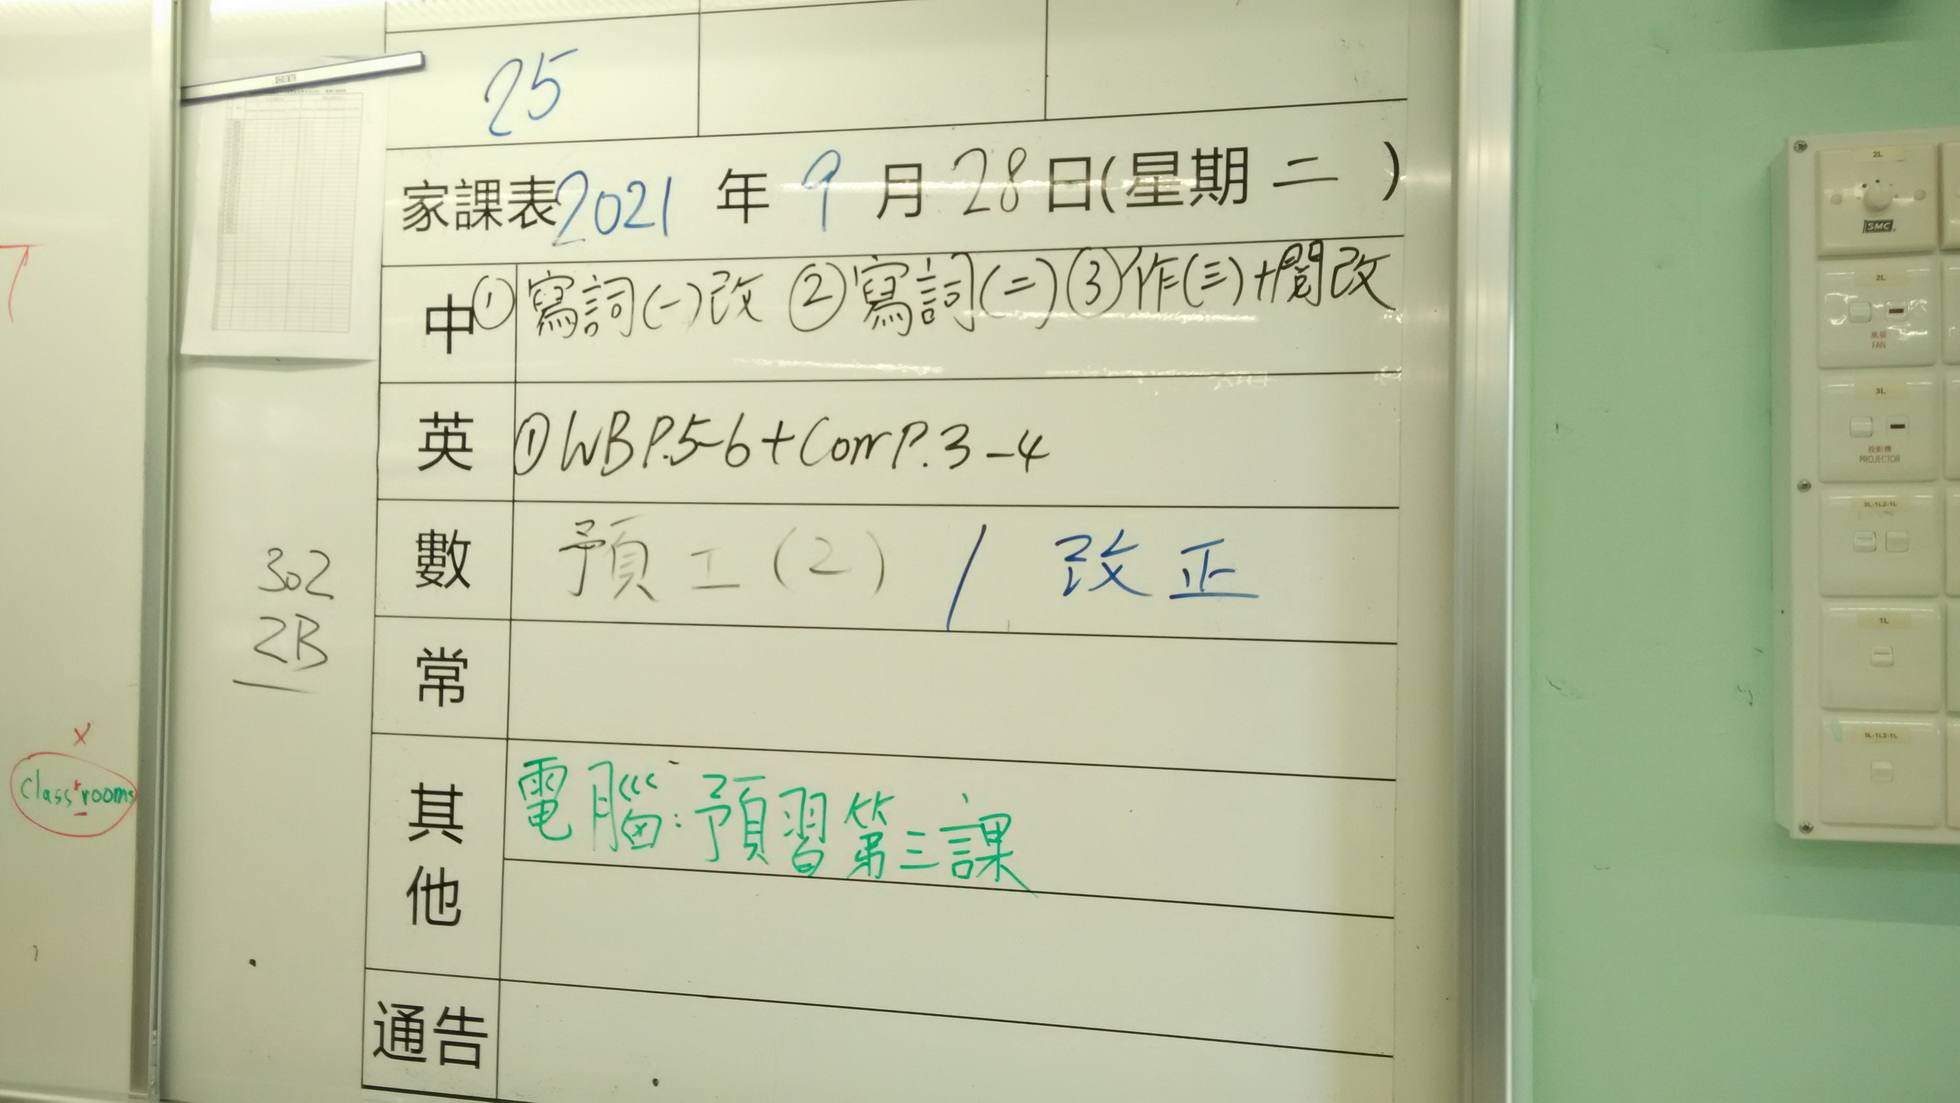 25
家課表2021年9月28日(星期二)
中 ①寫詞(一)改 ②寫詞(二)③作(三)+閱改
英 ①WB P.5-6+Corr P.3-4
數 預工(2) / 改正
常
其他 電腦:預習第三課
通告
302
2B
x
classrooms
2L
SMC
2L
風扇
FAN
3L
投影機
PROJECTOR
1L